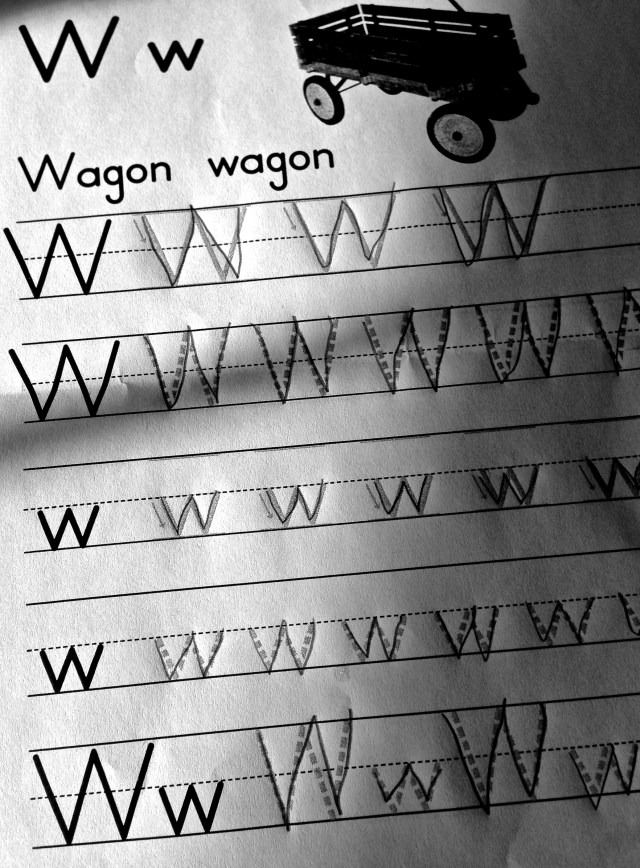 W w
Wagon wagon
W W W W
W W W W W W
w w w w w w
w w w w w w w
W w W w W w